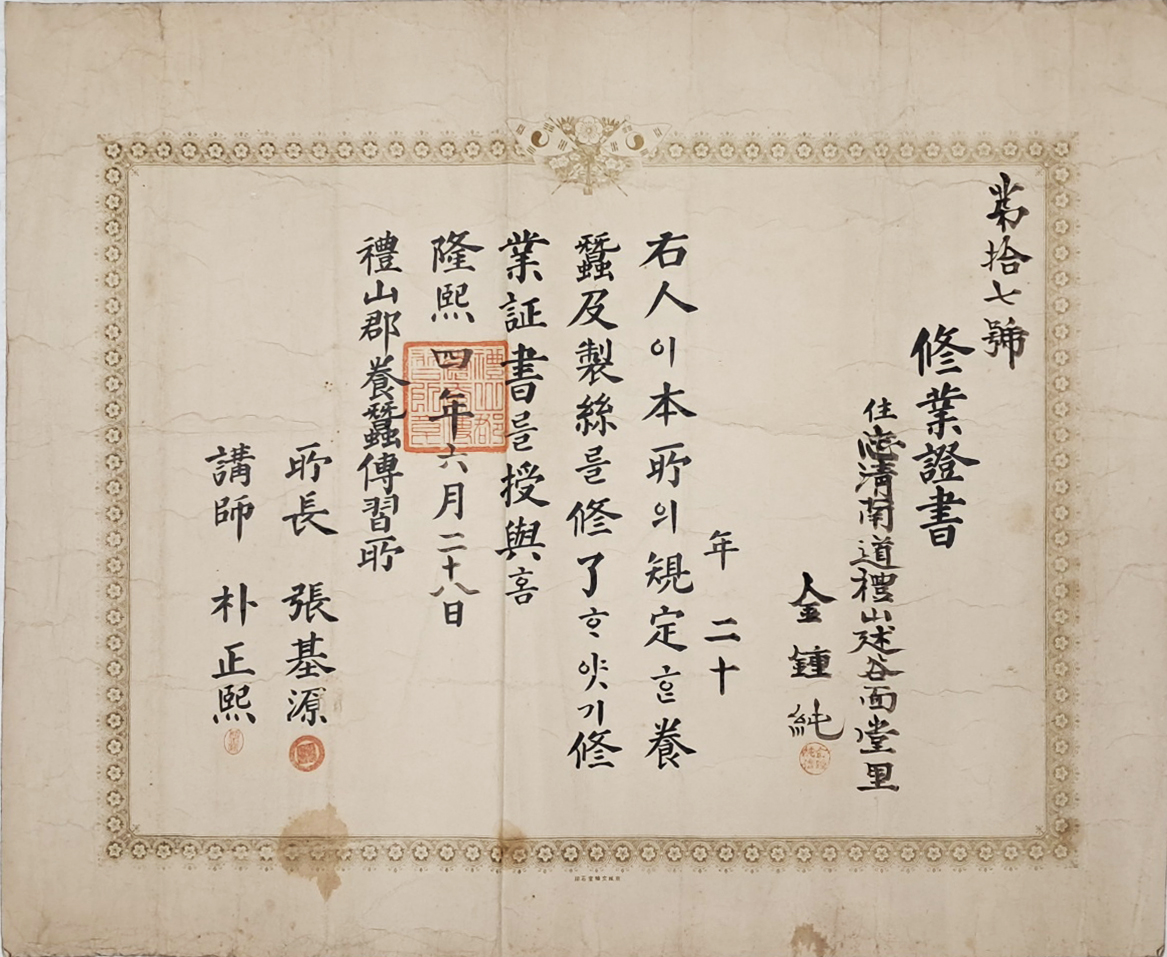 第拾七號
修業證書
住忠淸南道禮山述谷面堂里
金鍾純
年二十
右人이本所의規定ᄒᆞᆫ養
蠶及製絲를修了ᄒᆞ얏기修
業証書를授與홈
隆熙四年六月二十八日
禮山郡養蠶傳習所
所長 張基源
講師 朴正熙